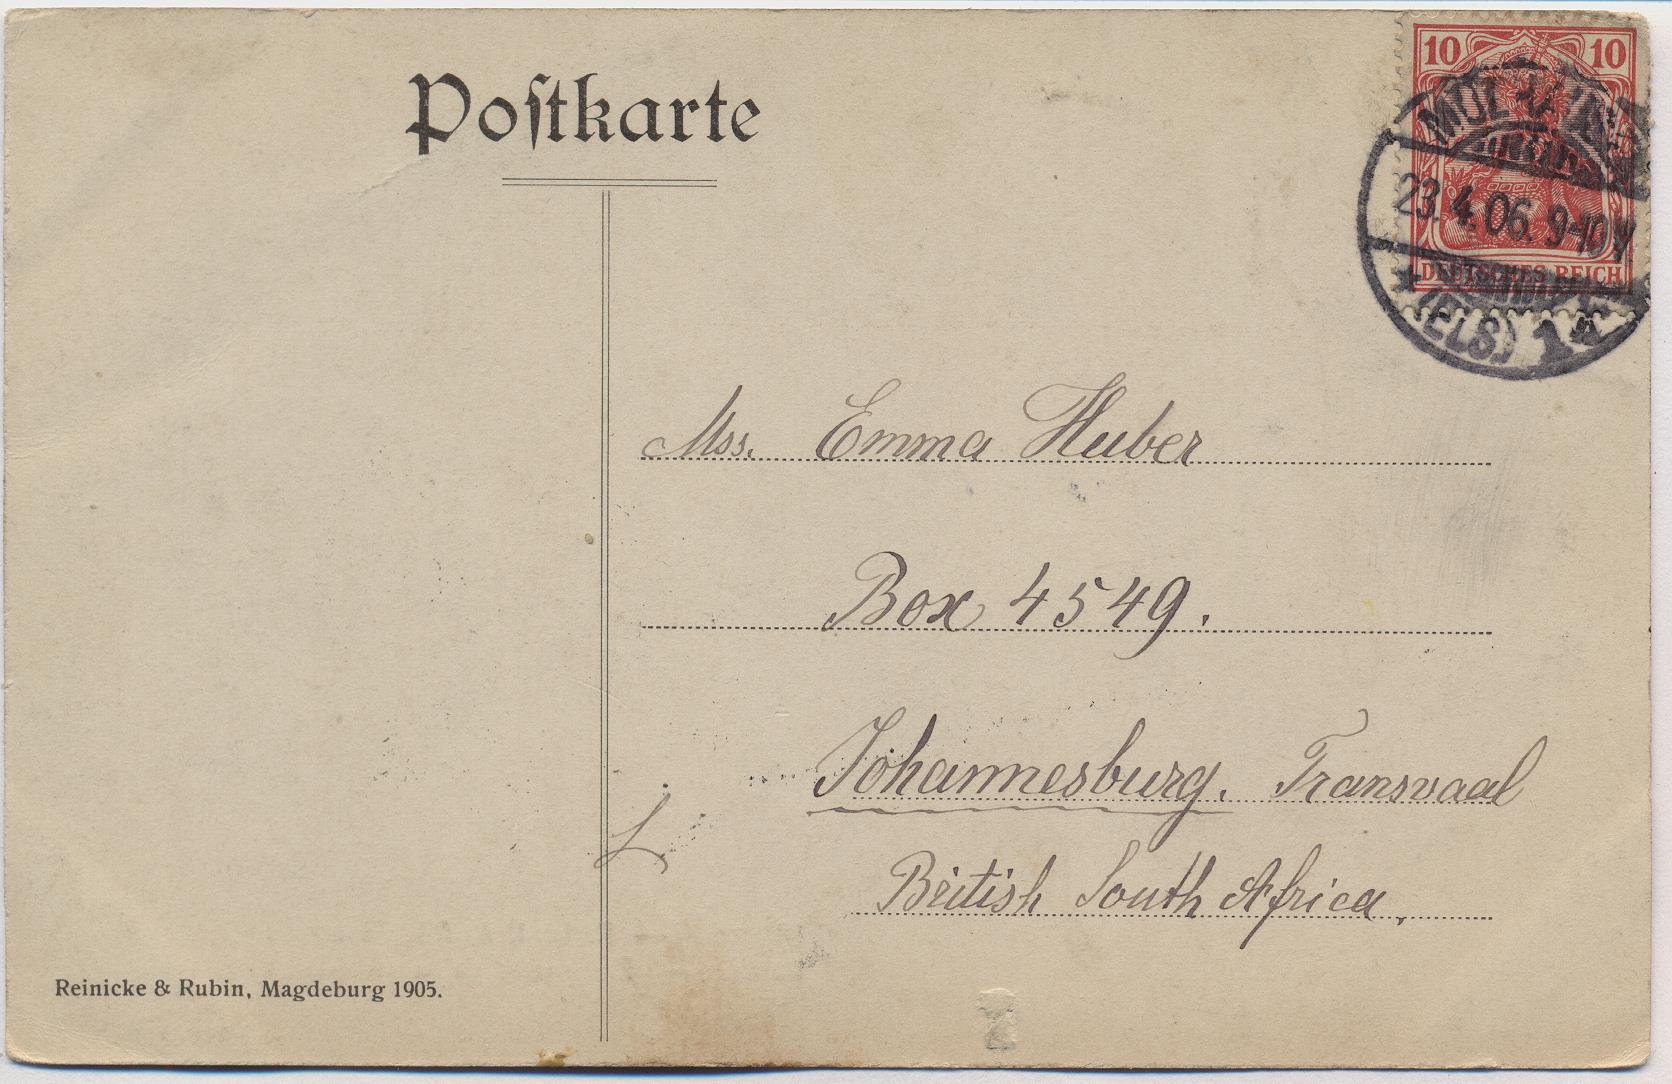 Poſtkarte
10 10
MÜLHAUSEN
23.4.06. 9-10V
DEUTSCHES REICH
* (ELS) 1 *
Mss. Emma Huber
Box 4549.
Johannesburg. Transvaal
British South Africa.
L
Reinicke & Rubin, Magdeburg 1905.